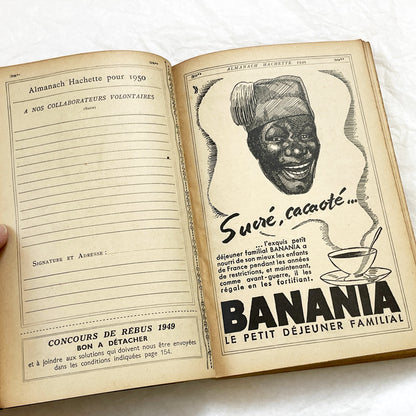 Almanach Hachette pour 1950
A NOS COLLABORATEURS VOLONTAIRES
(Suite)
SIGNATURE ET ADRESSE :
CONCOURS DE REBUS 1949
BON A DÉTACHER
et à joindre aux solutions qui doivent nous être envoyées
dans les conditions indiquées page 154.
ALMANACH HACHETTE 1949
Sucré, cacaoté...
... l'exquis petit
déjeuner familial BANANIA a
nourri de son mieux les enfants
de France pendant les années
de restrictions, et maintenant,
comme avant-guerre, il les
régale en les fortifiant.
BANANIA
LE PETIT DÉJEUNER FAMILIAL